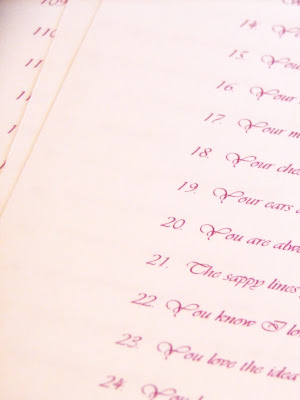 109
110
14.
15. You
16. Your
17. Your m
18. Your che
19. Your ears a
20. You are alwa
21. The sappy lines
22. You know I lo
23. You love the idea
24. You